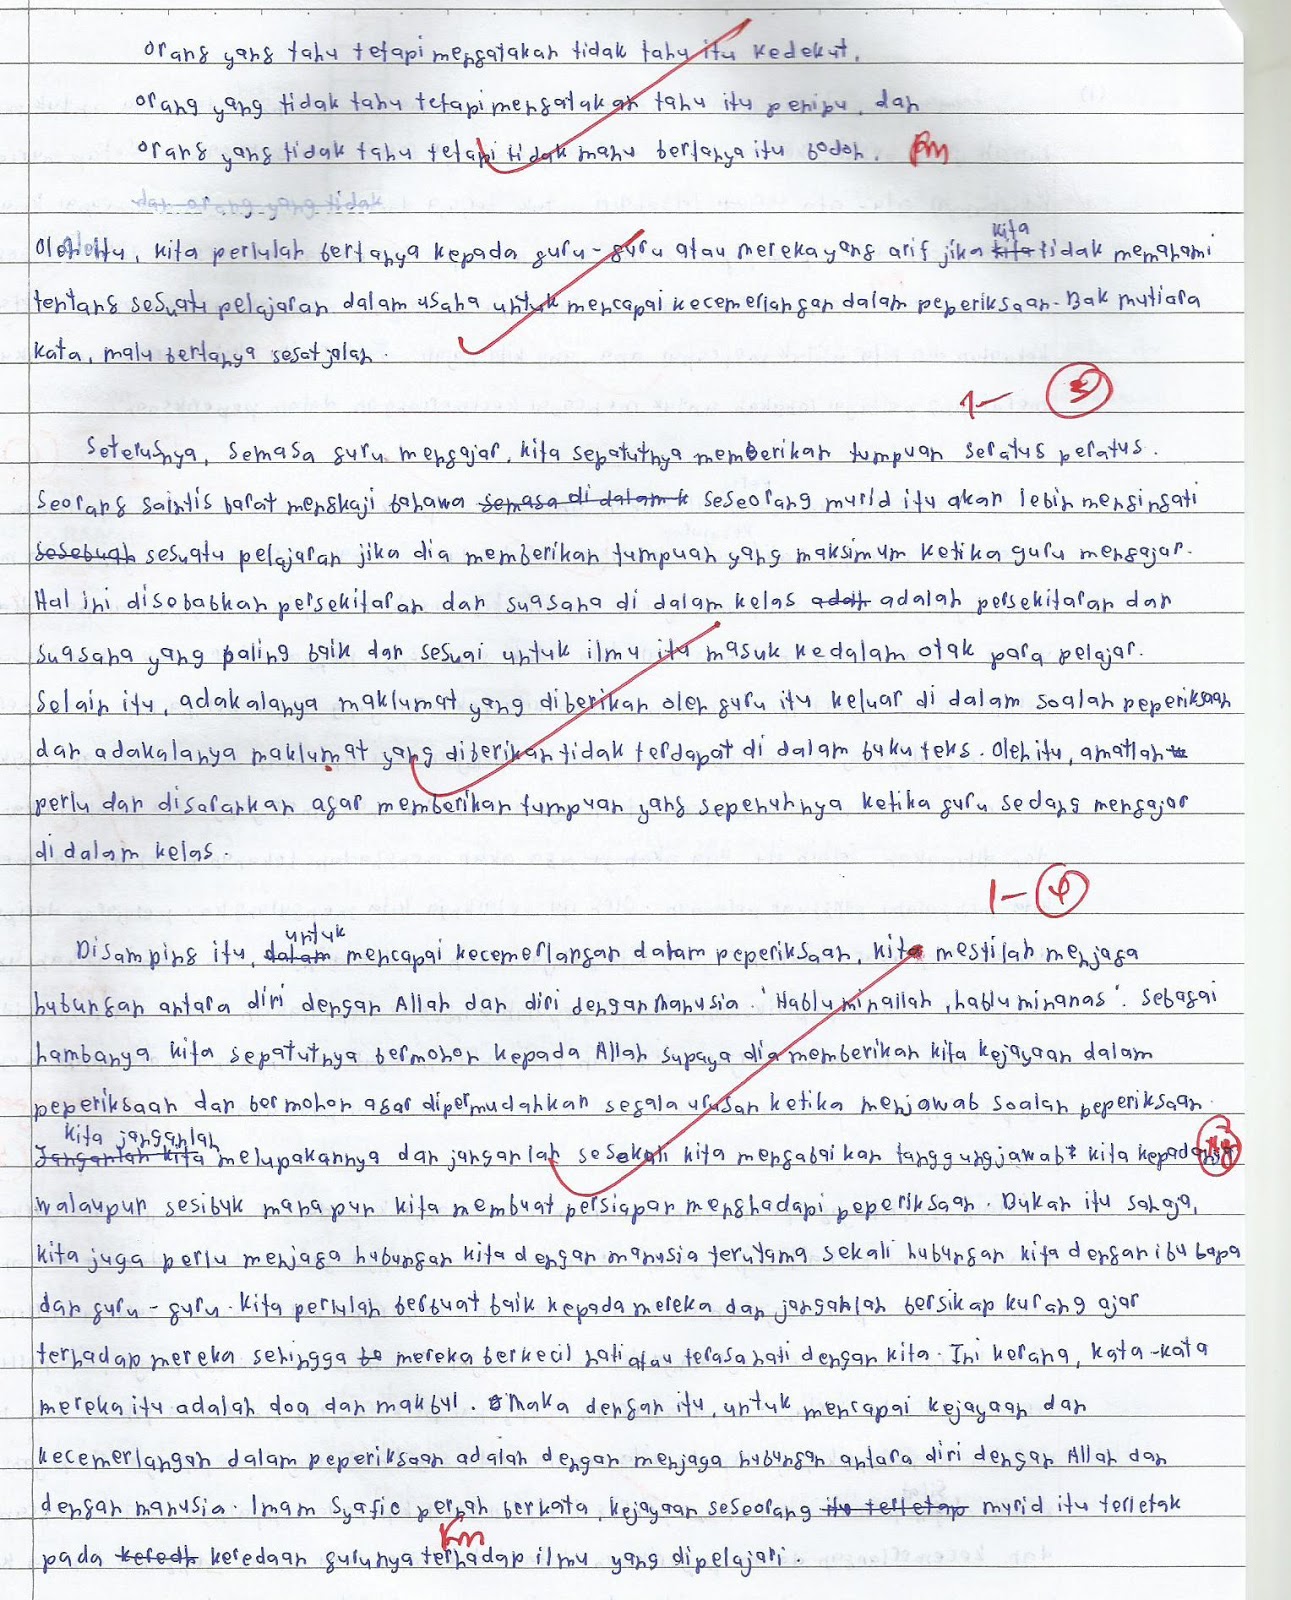 orang yang tahu tetapi mengatakan tidak tahu itu kedekut,
orang yang tidak tahu tetapi mengatakan tahu itu penipu, dan
orang yang tidak tahu tetapi tidak mahu bertanya itu bodoh.
Oleh itu, kita perlulah bertanya kepada guru-guru atau mereka yang arif jika kita tidak memahami
tentang sesuatu pelajaran dalam usaha untuk mencapai kecemerlangan dalam peperiksaan. Bak mutiara
kata, malu bertanya sesat jalan.
1- 3
Seterusnya, semasa guru mengajar, kita sepatutnya memberikan tumpuan seratus peratus.
Seorang saintis barat mengkaji bahawa semasa di dalam k seseorang murid itu akan lebih mengingati
sesebuah sesuatu pelajaran jika dia memberikan tumpuan yang maksimum ketika guru mengajar.
Hal ini disebabkan persekitaran dan suasana di dalam kelas adalah persekitaran dan
suasana yang paling baik dan sesuai untuk ilmu itu masuk kedalam otak para pelajar.
Selain itu, adakalanya maklumat yang diberikan oleh guru itu keluar di dalam soalan peperiksaan
dan adakalanya maklumat yang diberikan tidak terdapat di dalam buku teks. Oleh itu, amatlah
perlu dan disarankan agar memberikan tumpuan yang sepenuhnya ketika guru sedang mengajar
di dalam kelas.
1- 4
untuk
Disamping itu, dalam mencapai kecemerlangan dalam peperiksaan, kita mestilah menjaga
hubungan antara diri dengan Allah dan diri dengan manusia. 'Hablu minallah, hablu minanas'. Sebagai
hambanya kita sepatutnya bermohon kepada Allah supaya dia memberikan kita kejayaan dalam
peperiksaan dan bermohon agar dipermudahkan segala urusan ketika menjawab soalan peperiksaan.
kita janganlah
Janganlah kita melupakannya dan janganlah sesekali kita mengabaikan tanggungjawab kita kepadanya
walaupun sesibuk manapun kita membuat persiapan menghadapi peperiksaan. Bukan itu sahaja,
kita juga perlu menjaga hubungan kita dengan manusia terutama sekali hubungan kita dengan ibu bapa
dan guru-guru. Kita perlulah berbuat baik kepada mereka dan janganlah bersikap kurang ajar
terhadap mereka sehingga mereka berkecil hati atau terasa hati dengan kita. Ini kerana, kata-kata
mereka itu adalah doa dan makbul. Maka dengan itu, untuk mencapai kejayaan dan
kecemerlangan dalam peperiksaan adalah dengan menjaga hubungan antara diri dengan Allah dan
dengan manusia. Imam Syafie pernah berkata, kejayaan seseorang itu terletap murid itu terletak
pada keredaan gurunya terhadap ilmu yang dipelajari.